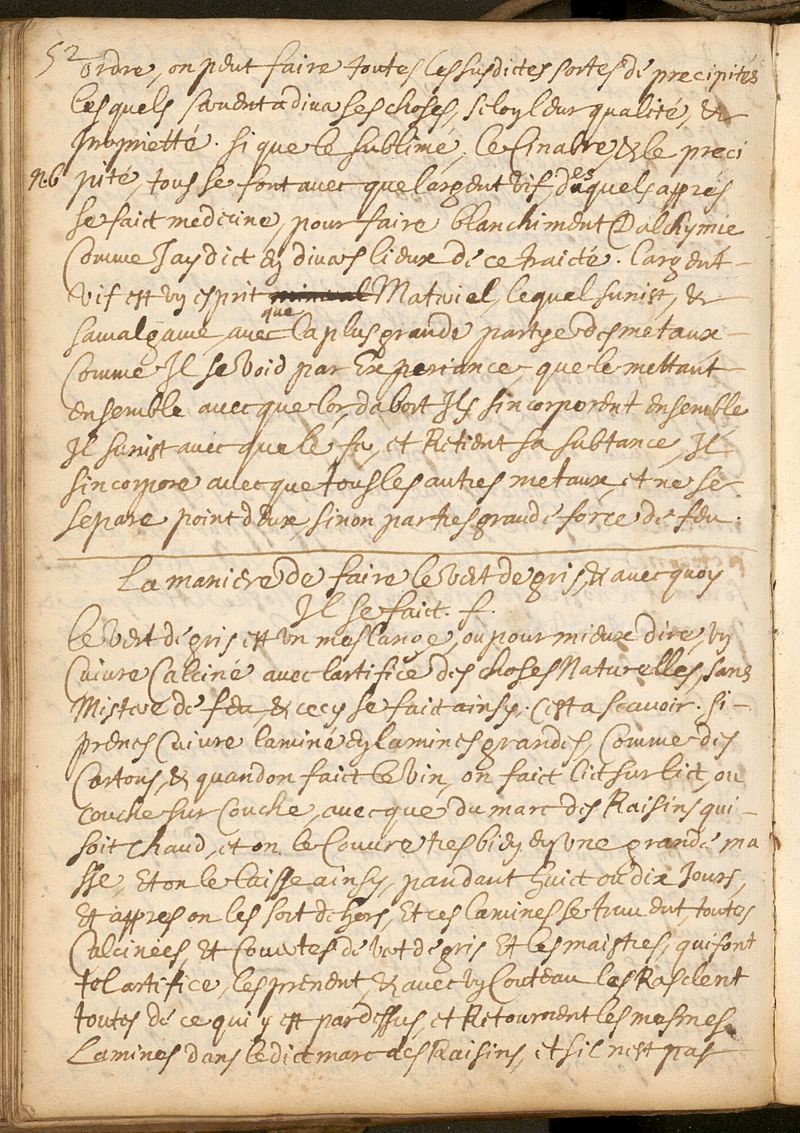 52
ordre, on peut faire toutes les susdictes sortes de precipités
lesquels servent a divers ses choses, selon leur qualité, &
proprietté. si que le sublimé, le Cinabre, & le preci
n.6 pité, tous se font avec que largent vif, desquels apprés
se faict medecine, pour faire blanchiment Dalchymie
Comme Jay dict en divers lieux de ce traicté. largent
vif est un esprit Materiel, lequel sunist, &
samalgame, avec que la plus grande partye des metaux
Comme Il se void par Experiance, que le mettant
ensemble avecque lor, dabort Ils sincorporent ensemble
Il sunist avecque le fer, et Retient sa subtance, Il
sincorpore avecque tous les autres metaux, et ne se
separe point deux, sinon par tres grande force de feu.
La maniere de faire le vert de gris, & avec quoy
Il se faict. f.
le vert de gris est un meslange, ou pour mieux dire, un
Cuivre Calciné avec lartifice des choses Naturelles, sans
Mistere de feu, & cecy se faict ainsy. Cest a scavoir. si
prenes Cuivre laminé en lamines grandes, Comme des
Cartons, & quand on faict le vin, on faict lict sur lict, ou
couche sur Couche, avecque du marc des Raisins qui
soit chaud, et on le Couvre tres bien en une grande ma
sse, Et on le laisse ainsy, pandant huict ou dix Jours,
Et appres on les sort dehors, Et ces lamines se truvent, toutes
Calcinées, Et Couvertes de vert de gris Et les maistres, qui font
tel artifice, les prenent & avec un Couteau les Rasclent
toutes de ce qui y est par dessus, et Retournent les mesmes
Lamines dans le dict marc des Raisins, et sil nest pas